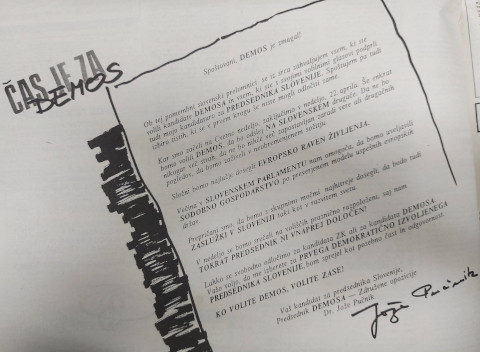 ČAS JE ZA
DEMOS
Spoštovani, DEMOS je zmagal!
Ob tej pomembni slovenski prelomnici se iz srca zahvaljujem vsem, ki ste
volili kandidate DEMOSA in vsem, ki ste s svojimi volilnimi glasovi podprli
tudi mojo kandidaturo za PREDSEDNIKA SLOVENIJE. Spoštujem pa tudi
izbiro tistih, ki se v prvem krogu je niste mogli odločiti zame.
Kar smo začeli na Cvetno nedeljo, zaključimo v nedeljo, 22. aprila. Še enkrat
bomo volili DEMOS, da bo odslej NA SLOVENSKEM drugače. Da ne bo
nikogar več strah, da ne bo nihče več zapostavljan zaradi vere ali drugačnih
pogledov, da bomo zaživeli v neobremenjenem sožitju.
Složni bomo najlažje dosegli EVROPSKO RAVEN ŽIVLJENJA.
Večina v SLOVENSKEM PARLAMENTU nam omogoča, da bomo uveljavili
SODOBNO GOSPODARSTVO po preverjenem modelu uspešnih evropskih
držav.
Prepričani smo, da bomo s skupnimi močmi najhitreje dosegli, da bodo tudi
ZASLUŽKI V SLOVENIJI taki kot v razvitem svetu.
V nedeljo se bomo srečali na voliščih praznično razpoloženi, saj nam
TOKRAT PREDSEDNIK NI VNAPREJ DOLOČEN!
Lahko se svobodno odločimo za kandidata ZK ali za kandidata DEMOSA.
Vašo voljo, da me izberete za PRVEGA DEMOKRATIČNO IZVOLJENEGA
PREDSEDNIKA SLOVENIJE, bom sprejel kot posebno čast in odgovornost.
KO VOLITE DEMOS, VOLITE ZASE!
Vaš kandidat za predsednika Slovenije,
Predsednik DEMOSA — Združene opozicije
Dr. Jože Pučnik
Jože Pučnik